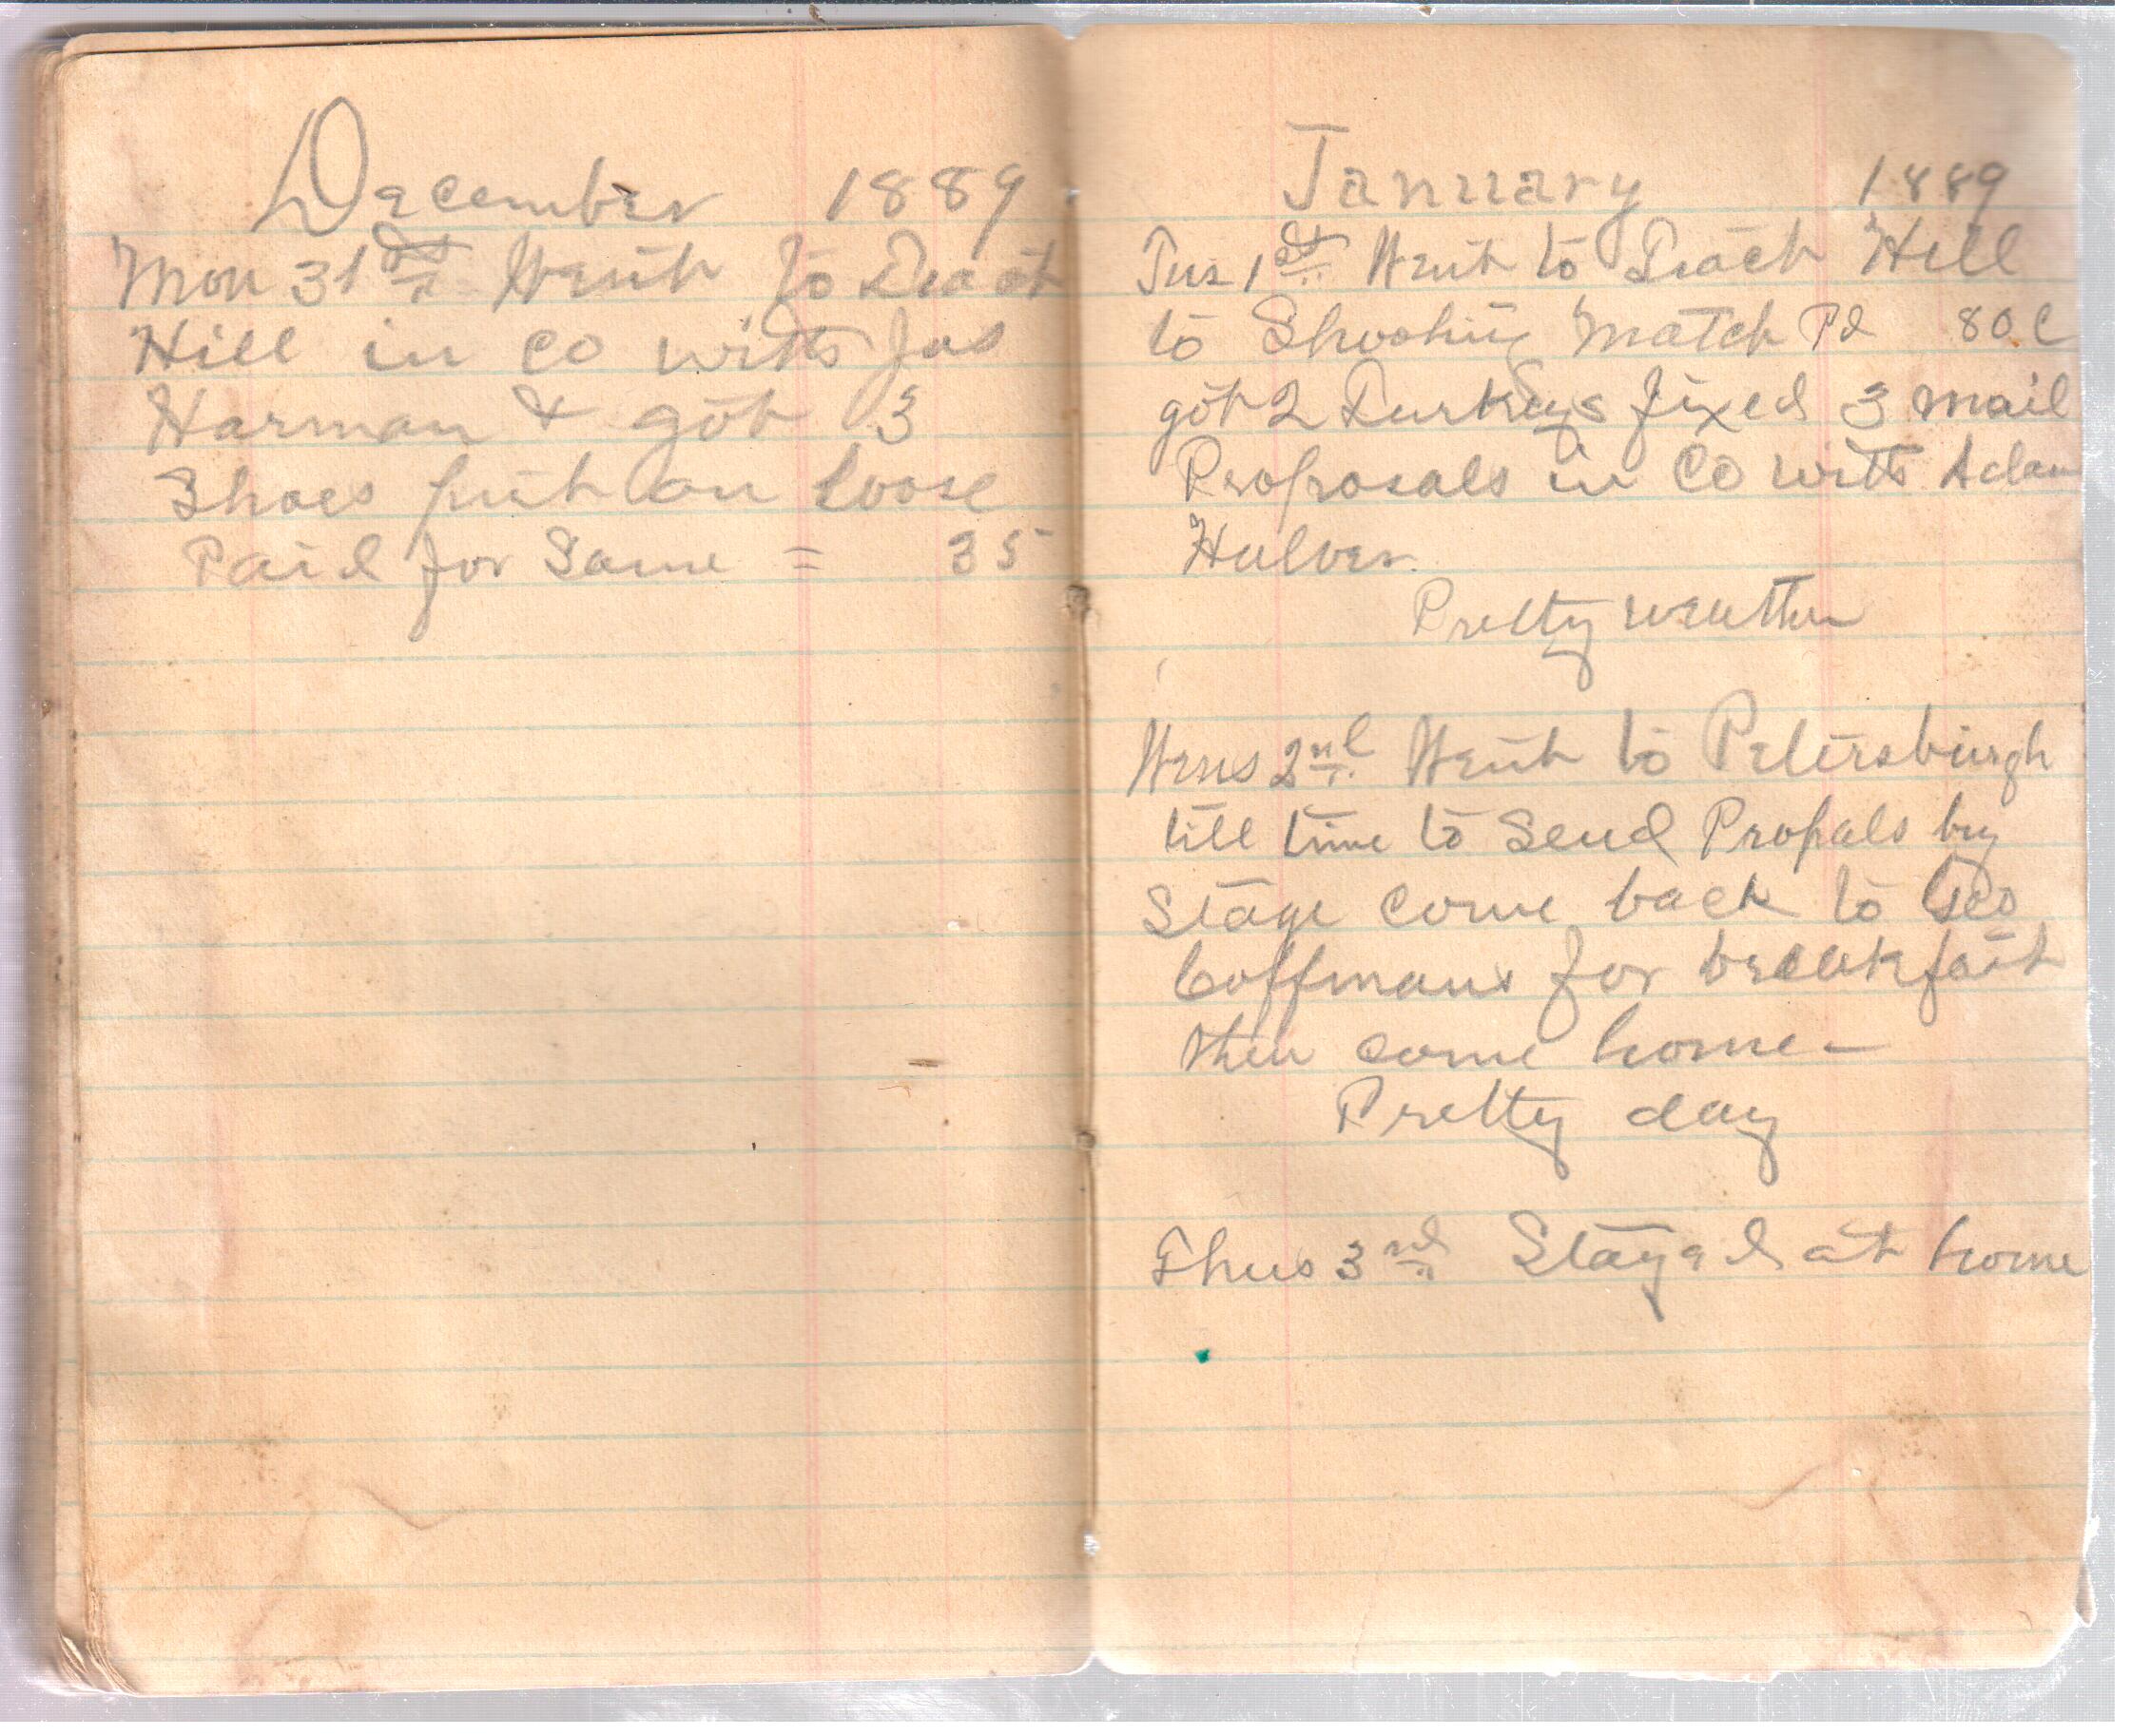 December 1889
Mon 31st Went to
Hill in co with Jas
Harman & got 3
Shoes put on loose
Paid for Same = 35
January 1889
Tus 1st Went to Hill
to Shooting Match Pd 80.c
got 2 Turkeys fixed 3 mail
Proposals in Co with Adam
Hulver.
Pretty weather
Wens 2nd Went to Petersburgh
till time to Send Propals by
Stage come back to Geo
Coffmans for breakfast
then come home –
Pretty day
Thus 3rd Stayed at home